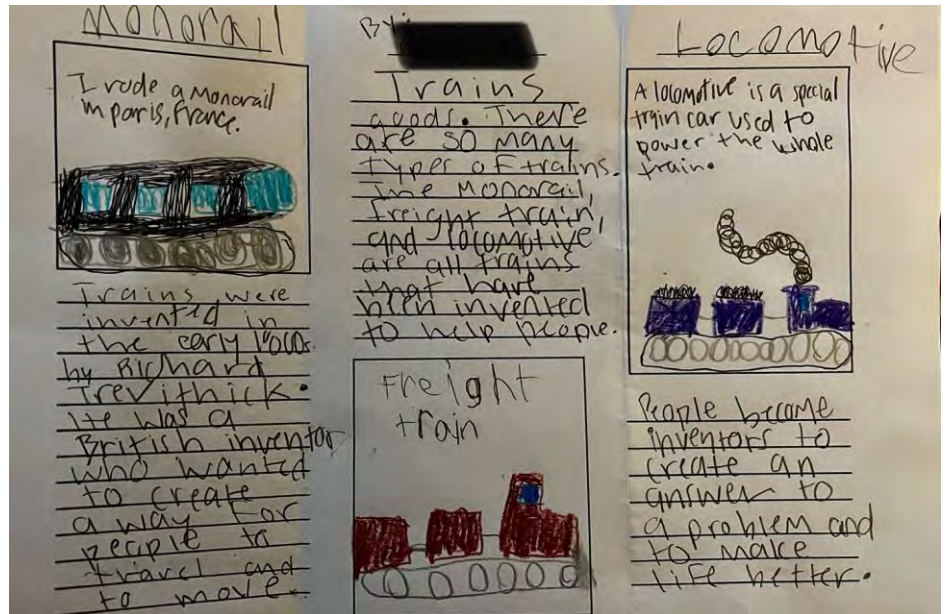 Monorail
I rode a Monorail
in paris, france.
Trains were
invented in
the early
by Richard
Trevithick.
He was a
British inventor
who wanted
to create
a way for
people to
travel and
to move.
By:
Trains
goods. There
are so many
types of trains.
The Monorail,
freight train,
and locomotive,
are all trains
that have
been invented
to help people.
Freight
train
Locomotive
A locomotive is a special
train car used to
power the whole
train.
People become
inventors to
create an
answer to
a problem and
to make
life better.